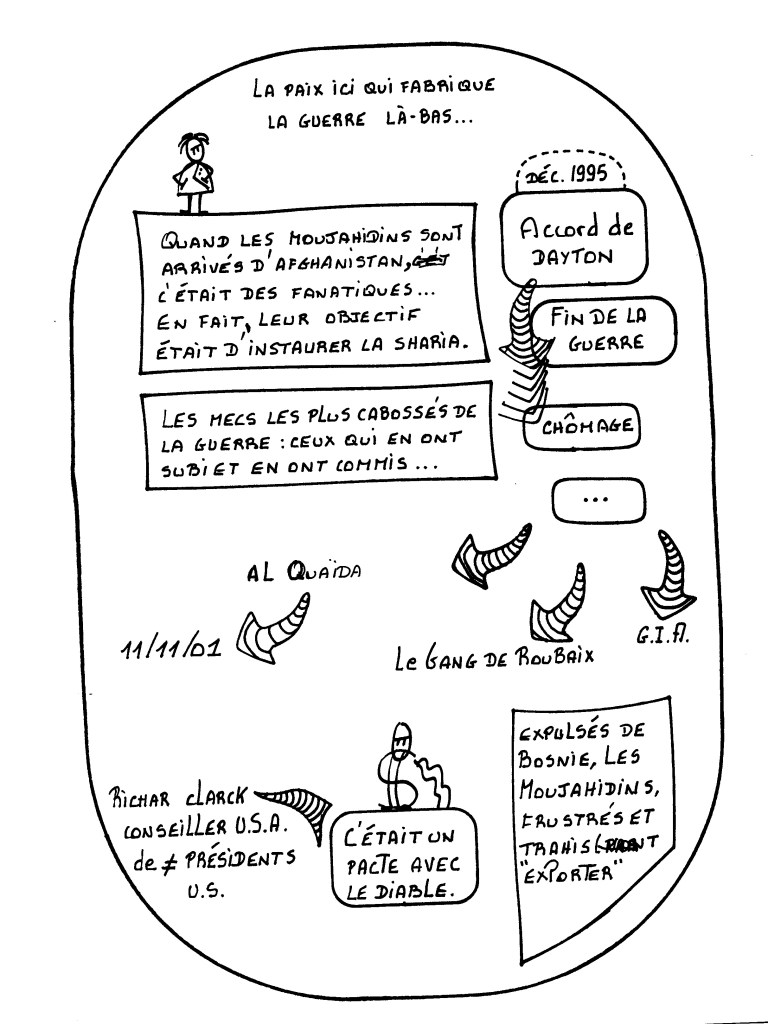 LA PAIX ICI QUI FABRIQUE
LA GUERRE LÀ-BAS...
DÉC. 1995
Accord de
DAYTON
QUAND LES MOUJAHIDINS SONT
ARRIVÉS D'AFGHANISTAN,
C'ÉTAIT DES FANATIQUES...
EN FAIT, LEUR OBJECTIF
ÉTAIT D'INSTAURER LA SHARIA.
FIN DE LA
GUERRE
LES MECS LES PLUS CABOSSÉS DE
LA GUERRE : CEUX QUI EN ONT
SUBI ET EN ONT COMMIS...
CHÔMAGE
...
AL QUAÏDA
11/11/01
LE GANG DE ROUBAIX
G.I.A.
EXPULSÉS DE
BOSNIE, LES
MOUJAHIDINS,
FRUSTRÉS ET
TRAHIS VONT
"EXPORTER"
RICHAR CLARCK
CONSEILLER U.S.A.
de ≠ PRÉSIDENTS
U.S.
C'ÉTAIT UN
PACTE AVEC
LE DIABLE.